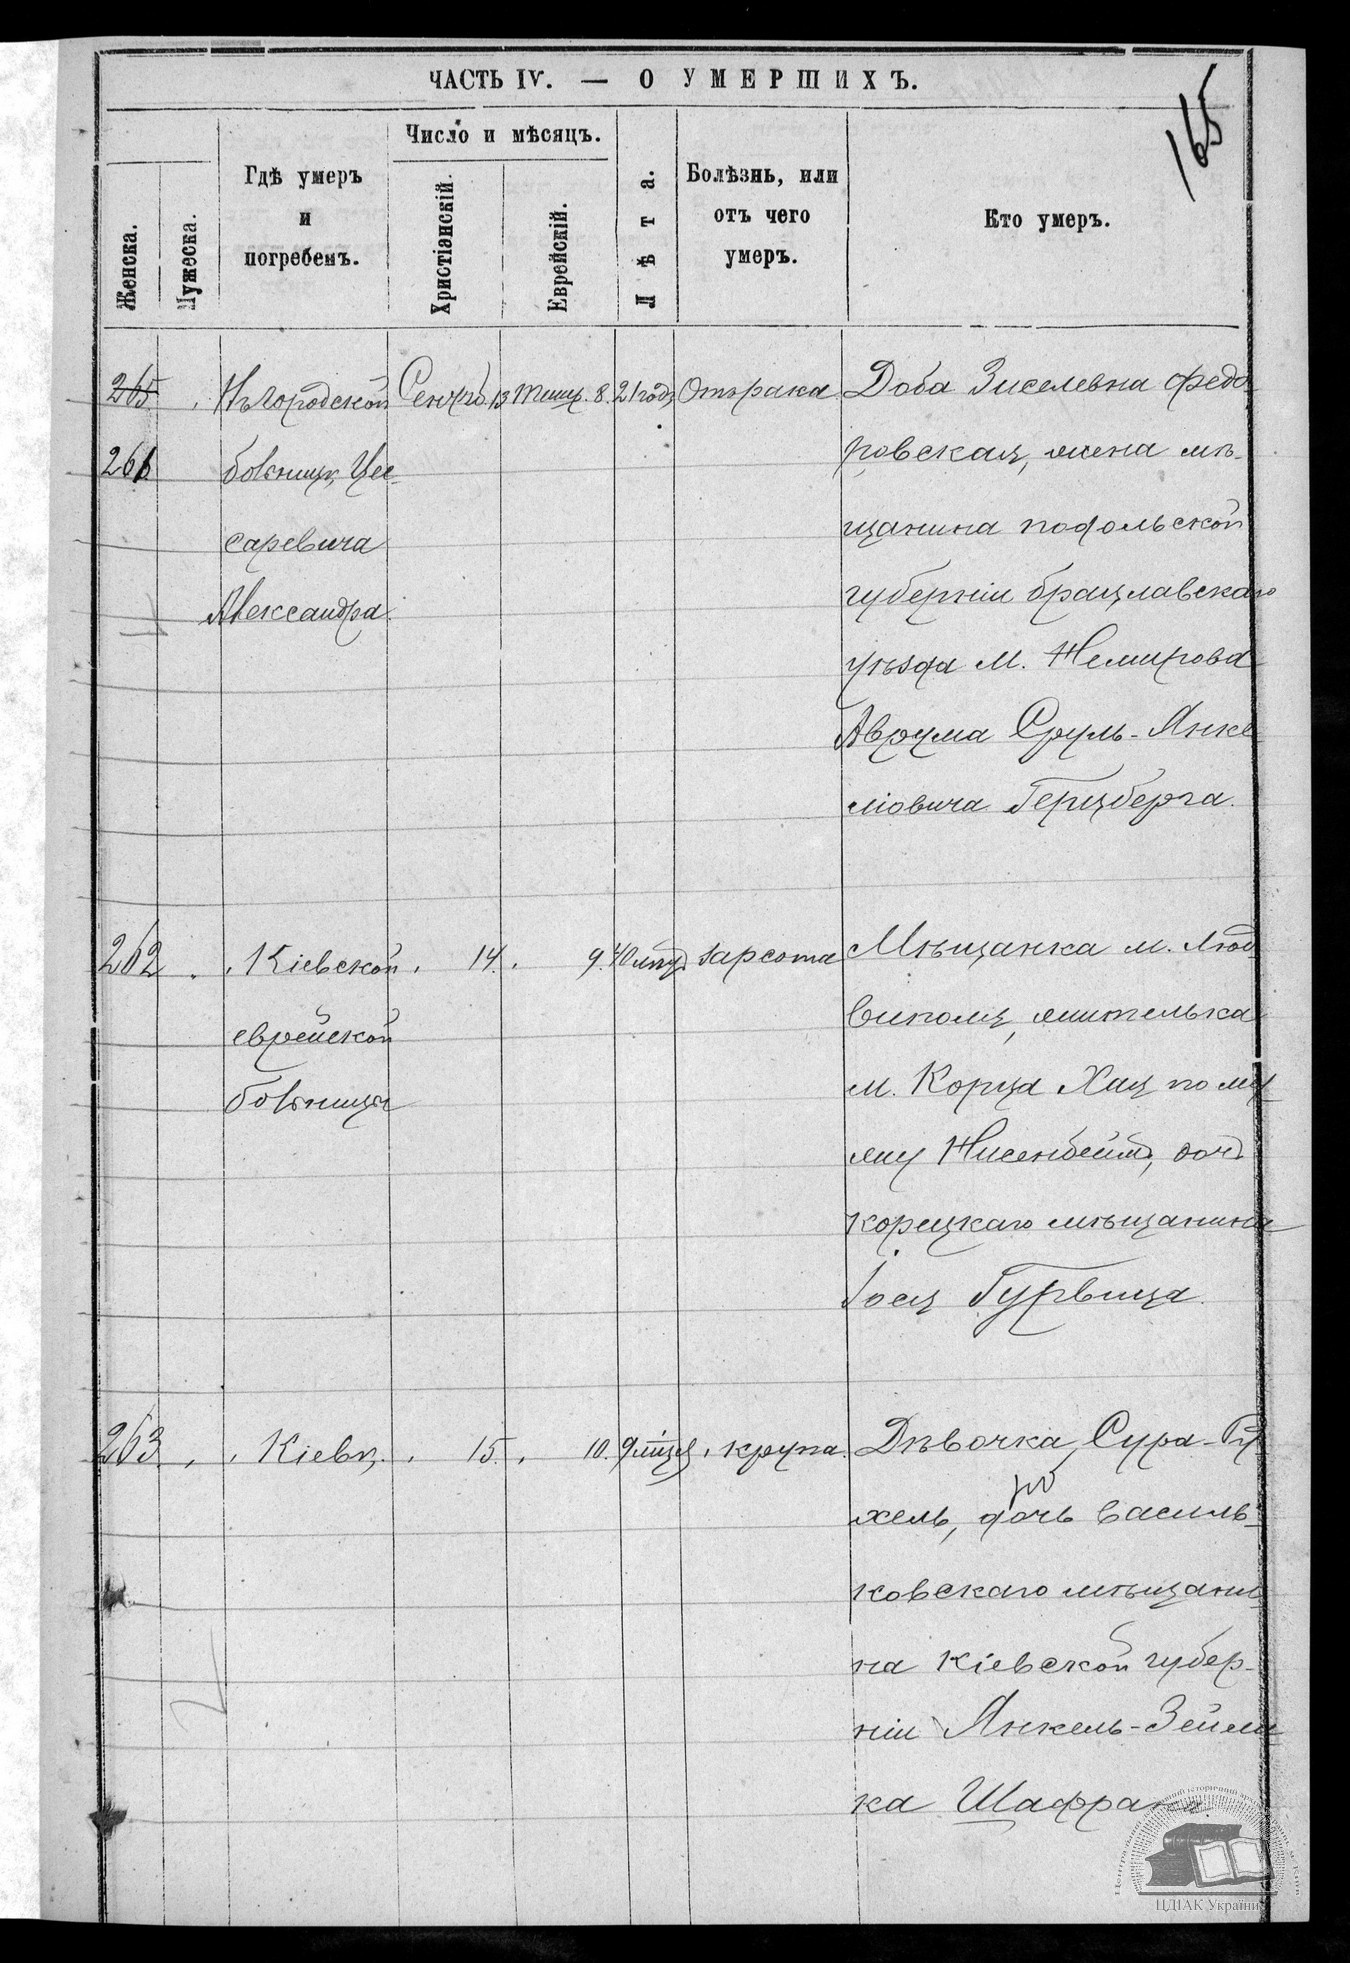 165
ЧАСТЬ IV. — О УМЕРШИХЪ.
Женска.
Мужеска.
Гдѣ умеръ
и
погребенъ.
Число и мѣсяцъ.
Христіанскій.
Еврейскій.
Лѣта.
Болѣзнь, или
отъ чего
умеръ.
Кто умеръ.
265
261
Въ городской
больницѣ Цес-
саревича
Александра.
Сентяб 13
Тишр. 8.
21 год
Отъ рака
Доба Зиселевна Федо
ровская, жена мѣ-
щанина подольской
губерніи брацлавскаго
уѣзда м. Немирова
Аврума Сруль-Янке
ліовича Герцберга.
262
Кіевской
еврейской
больницѣ
14.
9.
40 лѣтъ
саркома
Мѣщанка м. Люд
виполя, жителька
м. Корца Хая по му
жу Нисенбеймъ, доч
корецкаго мѣщанина
Іося Гурвица.
263.
Кіевѣ,
15.
10.
9 мѣсяц
крупа.
Дѣвочка, Сура-Ру
хель, дочь василь-
ковскаго мѣщани-
на кіевской губер-
ніи Янкель-Зейли
ка Шафрана.
ЦДІАК України